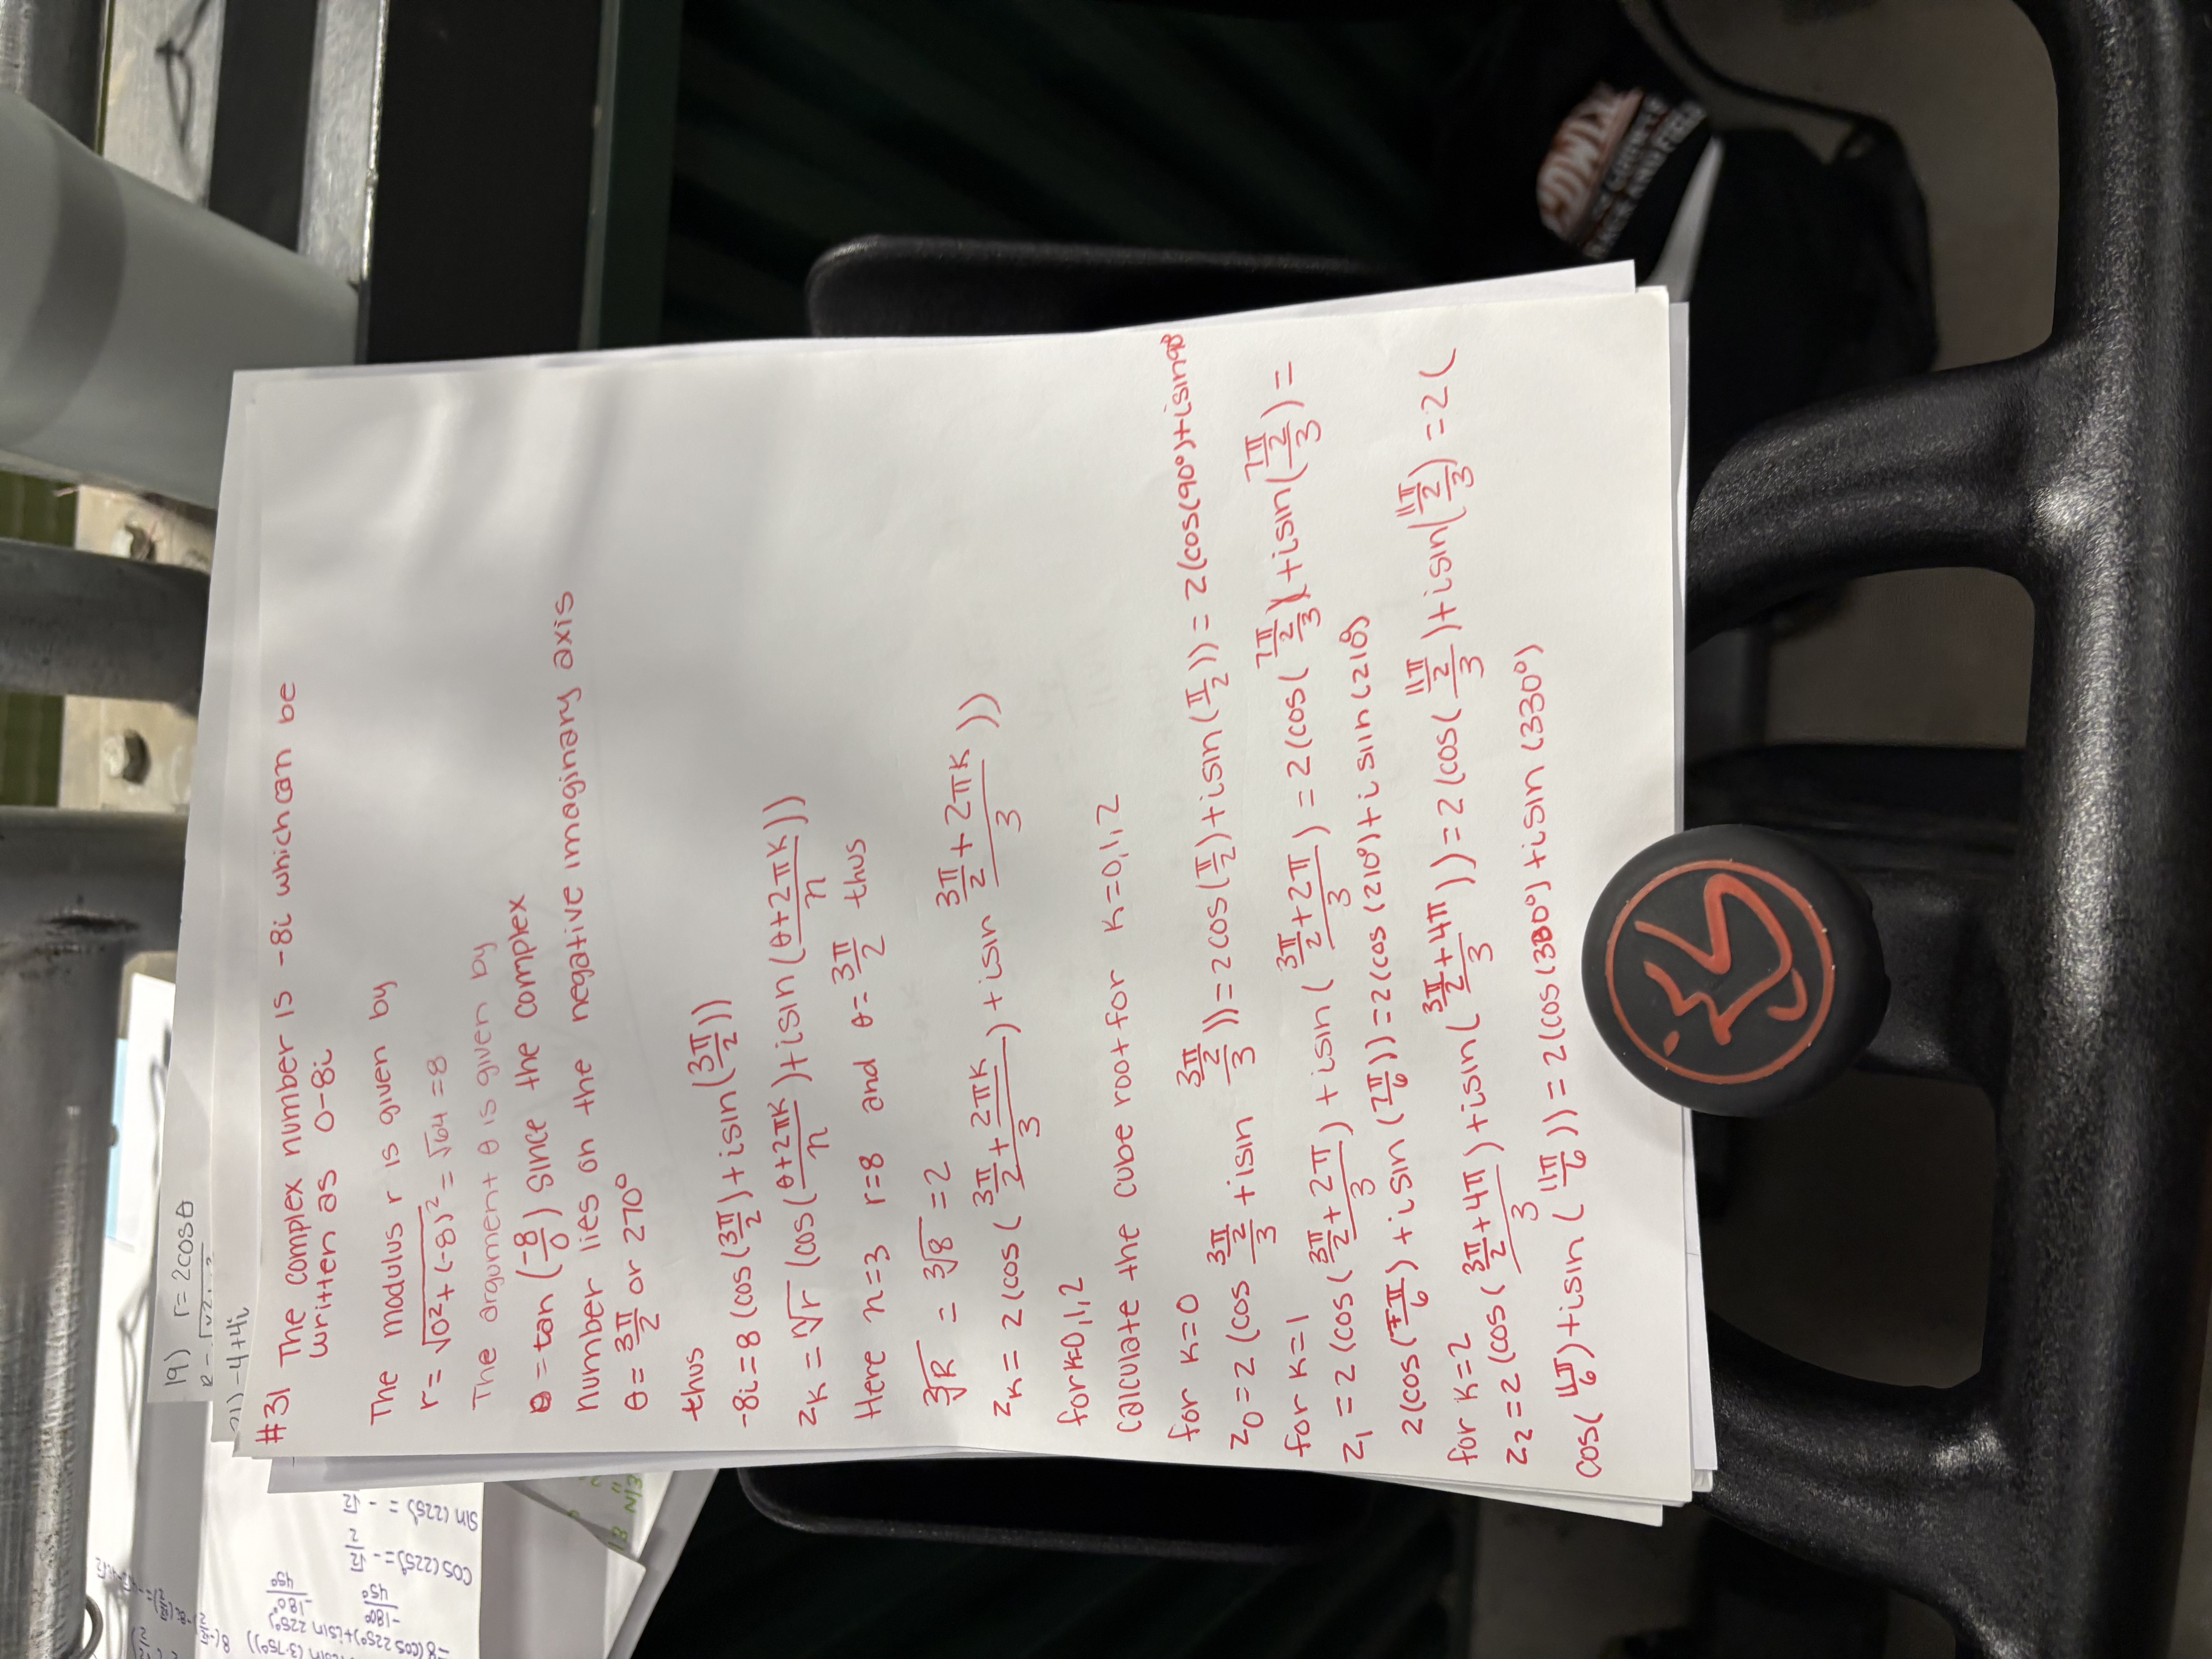 19) r=2cosθ
21) -4+4i
#31 The complex number is -8i which can be
written as 0-8i
The modulus r is given by
r = √0²+(-8)² = √64 = 8
The argument θ is given by
θ = tan (-8/0) since the complex
number lies on the negative imaginary axis
θ = 3π/2 or 270°
thus
-8i = 8 (cos (3π/2) + isin (3π/2))
zk = ⁿ√r (cos (θ+2πk/n) + isin (θ+2πk/n))
Here n=3 r=8 and θ= 3π/2 thus
³√R = ³√8 = 2
zk = 2 (cos (3π/2 + 2πk/3) + isin 3π/2 + 2πk/3))
for k=0,1,2
calculate the cube root for k=0,1,2
for k=0
z0 = 2 (cos 3π/2/3 + isin 3π/2/3)) = 2 cos (π/2) + isin (π/2)) = 2(cos(90°)+isin90
for k=1
z1 = 2 (cos (3π/2+2π/3) + isin (3π/2+2π/3) = 2 (cos (7π/2/3) + isin (7π/2/3) =
2(cos(7π/6) + isin (7π/6)) = 2(cos (210°) + i sin (210°)
for k=2
z2 = 2 (cos (3π/2+4π/3) + isin (3π/2+4π/3)) = 2 (cos (11π/2/3) + isin (11π/2/3) = 2 (
cos(11π/6) + isin (11π/6)) = 2(cos (330°) + isin (330°)
sin (225°) = - √2
cos (225°) = - √2/2
-180
450
-180
450
-8(cos 225°)+isin 225°)